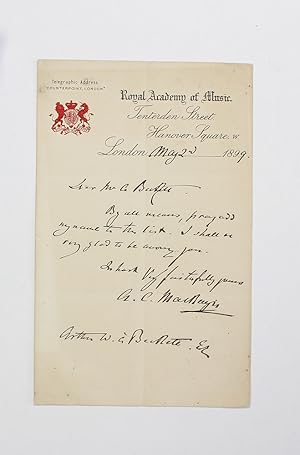 Telegraphic Address
"COUNTERPOINT, LONDON"
Royal Academy of Music.
Tenterden Street,
Hanover Square. W
London May 2nd 1899.
Dear Mr A Beckett
By all means, pray add
my name to the list. I shall be
very glad to be among you.
In haste Very faithfully yours
A. C. Mackenzie
Arthur W. à Beckett. Esq